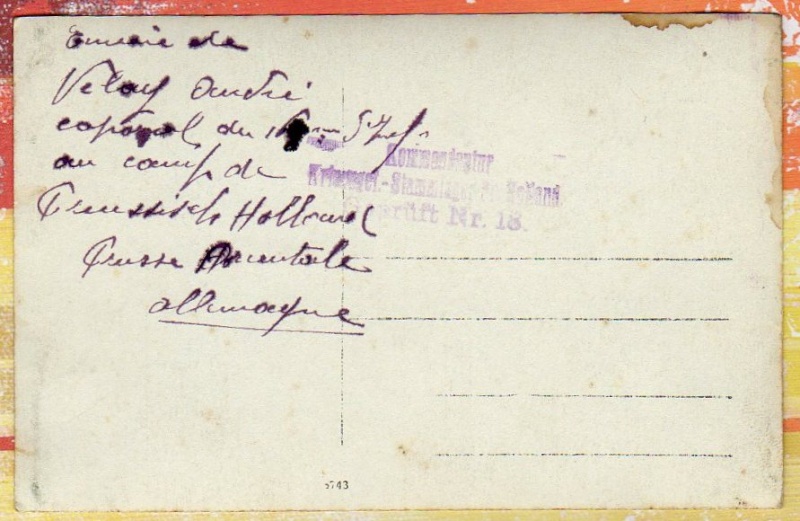 Envoie de
Velay André
caporal du
au camp de
Preussisch Holland
Prusse Orientale
Allemagne
Kommandantur
Kriegsgef.-Stammlager Pr. Holland.
Geprüft Nr. 18.
5743